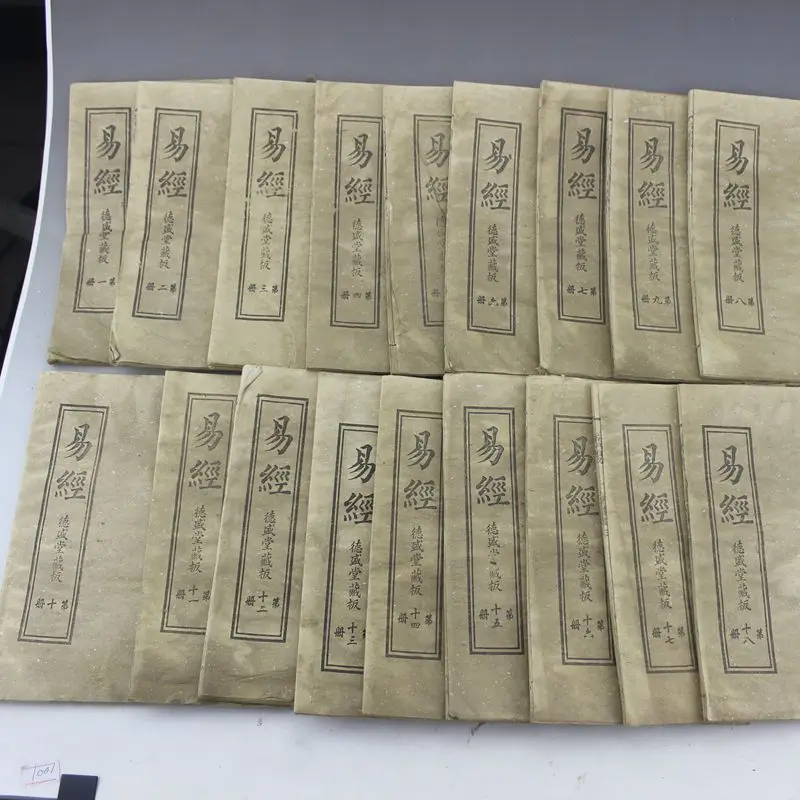 易經
德盛堂藏板
第一冊
易經
德盛堂藏板
第二冊
易經
德盛堂藏板
第三冊
易經
德盛堂藏板
第四冊
易經
冊
易經
德盛堂藏板
第六冊
易經
德盛堂藏板
第七冊
易經
德盛堂藏板
第九冊
易經
德盛堂藏板
第八冊
易經
德盛堂藏板
第十冊
易經
德盛堂藏板
第十一冊
易經
德盛堂藏板
第十二冊
易經
德盛堂藏板
第十三冊
易經
德盛堂藏板
第十四冊
易經
德盛堂藏板
第十五冊
易經
德盛堂藏板
第十六冊
易經
德盛堂藏板
第十七冊
易經
德盛堂藏板
第十八冊